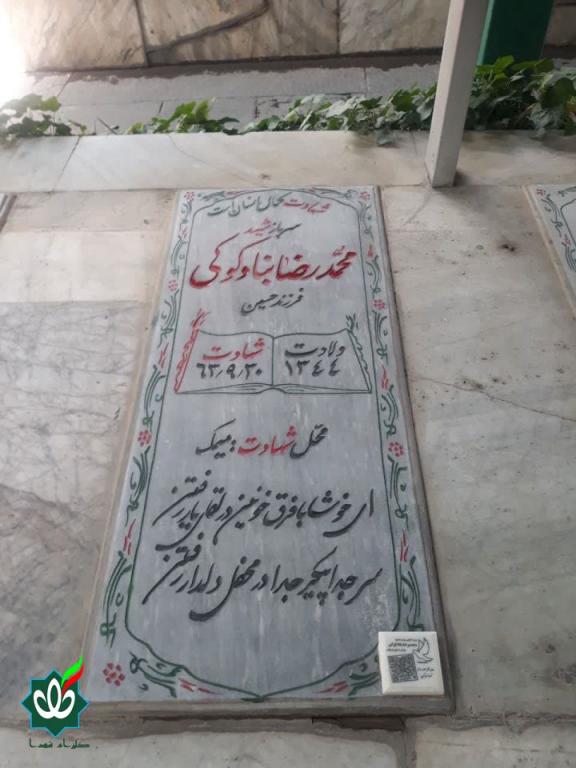 شهادت کمال انسان است
سرباز شهید
محمدرضا بناوکوکی
فرزند حسین
ولادت
۱۳۴۴
شهادت
۶۳٫۹٫۲۰
محل شهادت: میمک
ای خوشا با فرق خونین در لقای یار رفتن
سر جدا پیکر جدا در محفل دلدار رفتن
گلزار شهدا